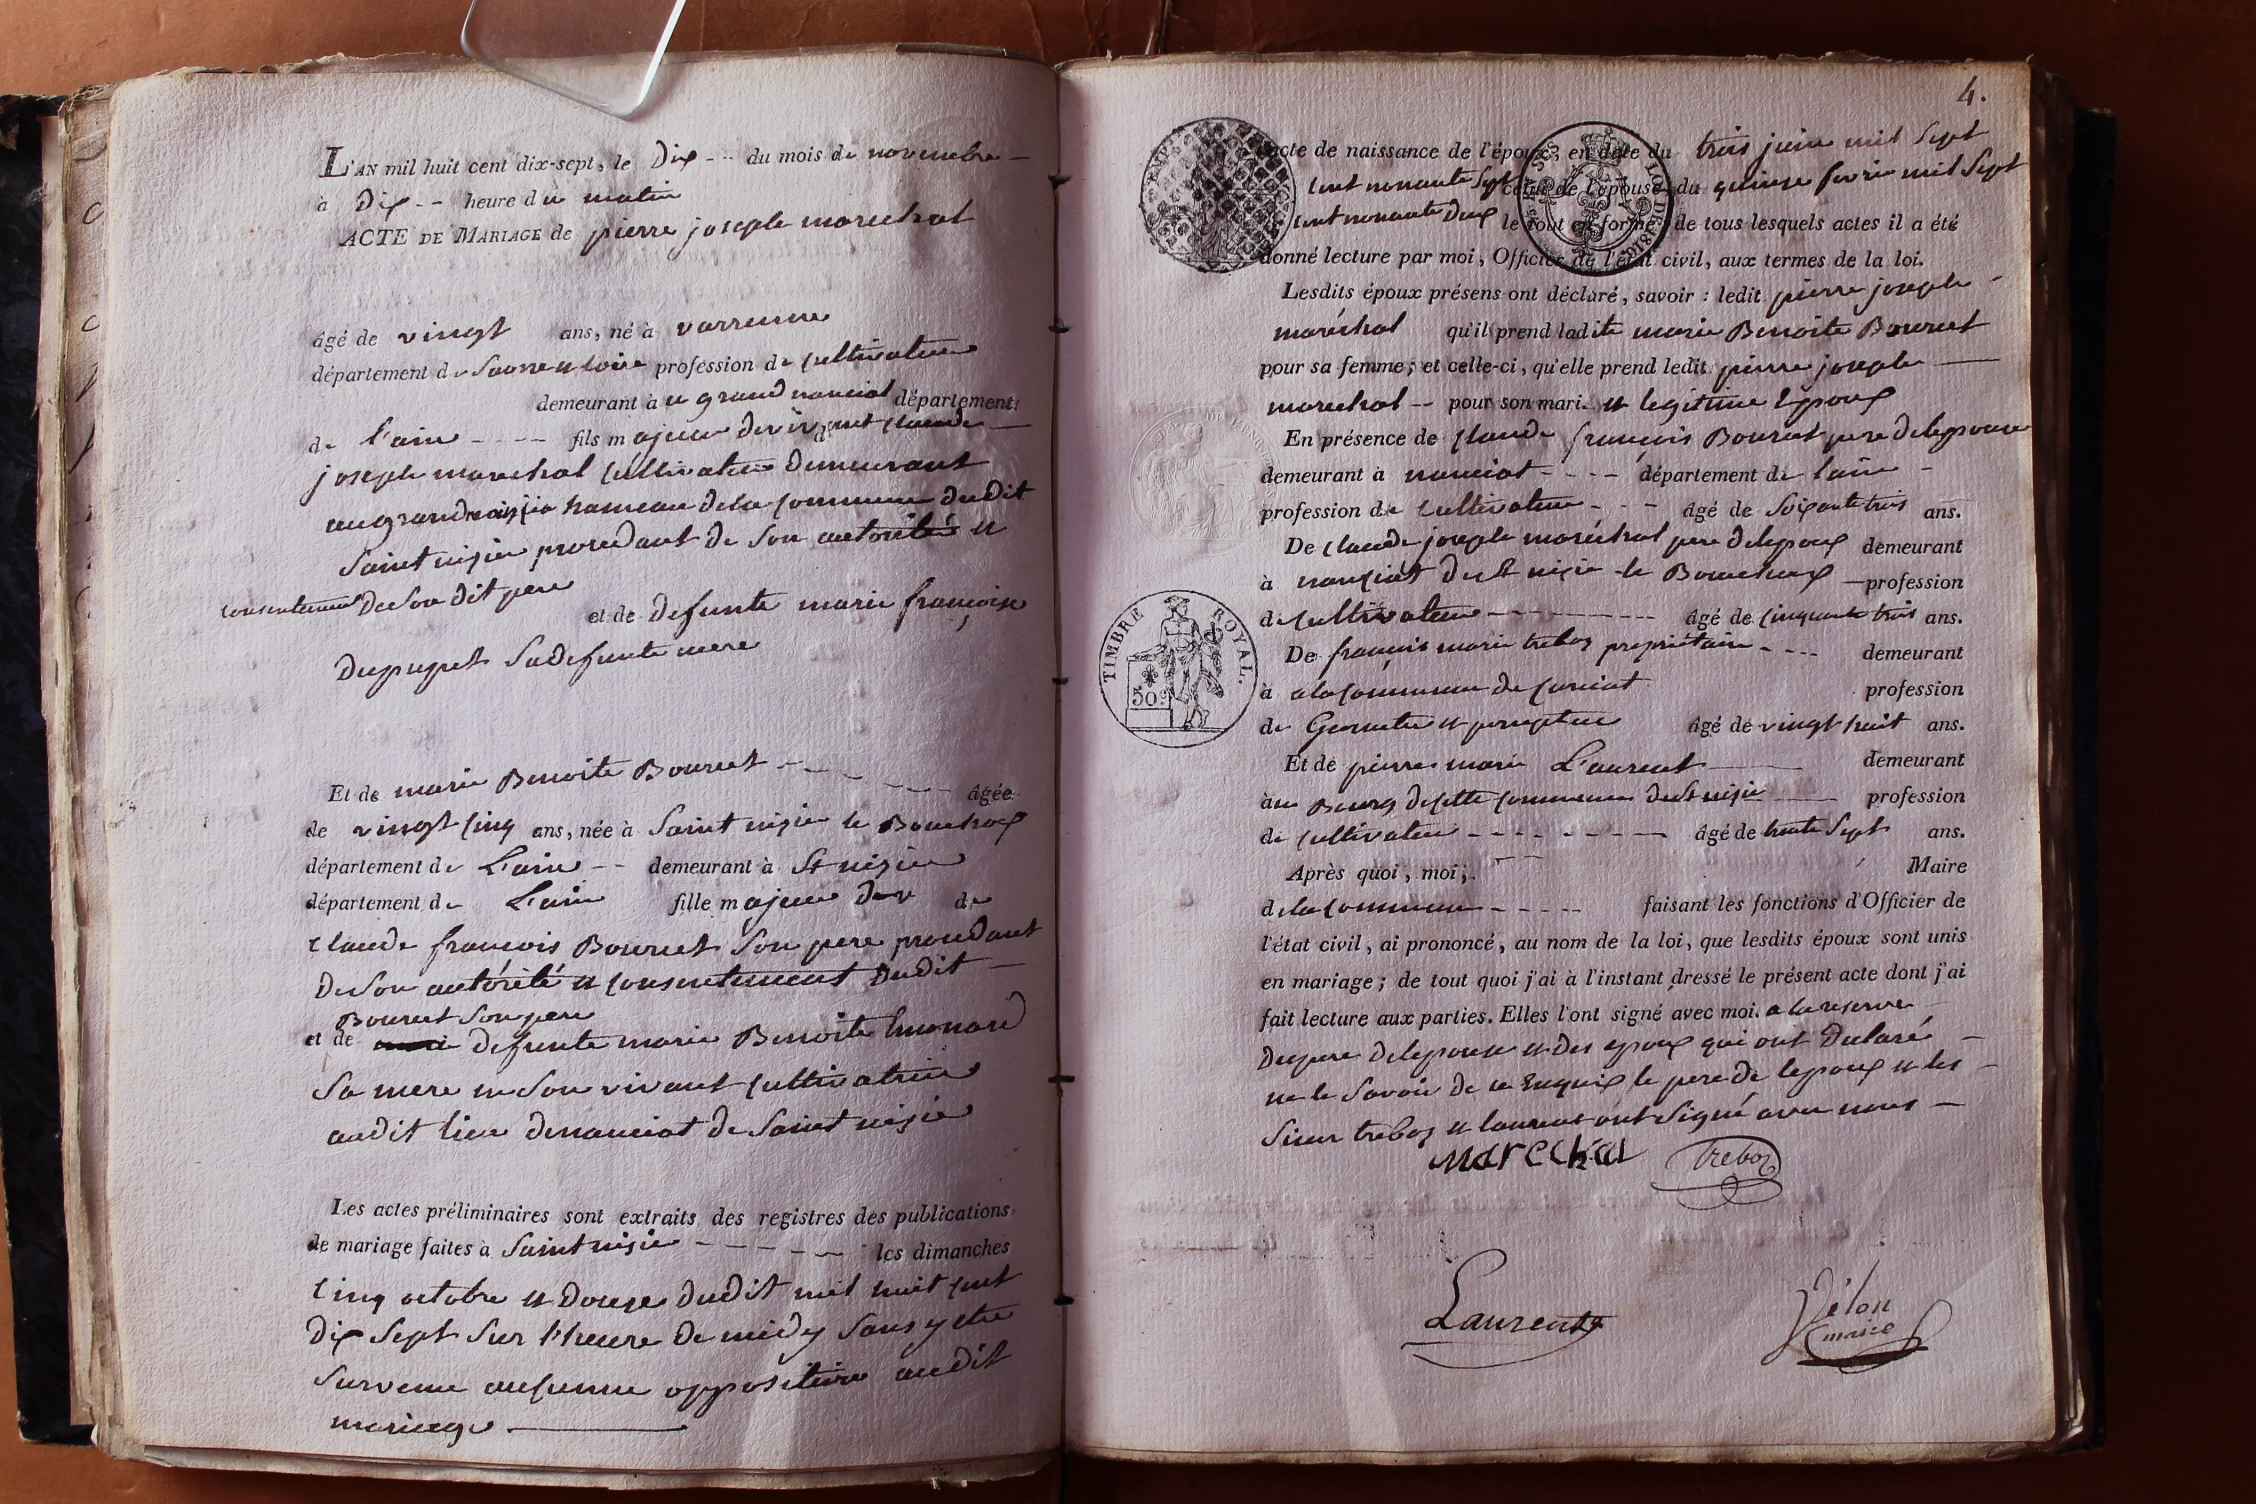 L'AN mil huit cent dix-sept, le Dix -- du mois de novembre
à Dix -- heure du matin
ACTE DE MARIAGE de pierre joseph marechal
âgé de vingt ans, né à varrenne
département de Saone et loire profession de Cultivateur
demeurant à u grand nanciat département
de l'ain ---- fils majeur de Claude
joseph marechal Cultivateur Demeurant
au grand hameau de la Commune dudit
Saint nisier procedant de Son autorité et
consentement De Son dit pere
et de Defunte marie françoise
Dupupet Sa defunte mere
Et de marie Benoite Bourcet ---- âgée
de vingt Cinq ans, née à Saint nisier le Bouchoux
département de L'ain -- demeurant à St nisier
département de L'ain fille majeur de
Claude françois Bourcet Son pere procedant
De Son autorité et Consentement Dudit
Bourcet Son pere
et de Defunte marie Benoite
Sa mere en Son vivant Cultivatrice
audit lieu denanciat de Saint nisier
Les actes préliminaires sont extraits des registres des publications
de mariage faites à Saint nisier ----- les dimanches
Cinq octobre et Douze Dudit mil huit Cent
Dix Sept Sur l'heure De midy Sans y etre
Survenu aucunne opposition audit
mariage
4.
acte de naissance de l'époux, en date du trois juin mil Sept
Cent nonante Sept celui de l'épouse du quinze fevrier mil Sept
Cent nonante Deux le tout en forme: de tous lesquels actes il a été
donné lecture par moi, Officier de l'état civil, aux termes de la loi.
Lesdits époux présens ont déclaré, savoir: ledit pierre joseph
maréchal qu'il prend ladite marie Benoite Bourcet
pour sa femme; et celle-ci, qu'elle prend ledit pierre joseph
marechal -- pour son mari et legitime Epoux
En présence de Claude françois Bourcet pere delepouse
demeurant à nanciat ---- département de lain
profession de Cultivateur --- âgé de Soixante trois ans.
De Claude joseph maréchal pere delepoux demeurant
à nanciat De St nisier le Bouchoux profession
de Cultivateur ------ âgé de Cinquante trois ans.
De françois marie treboz propriétaire ---- demeurant
à a la Commune de Curciat profession
de Geometre et percepteur âgé de vingt huit ans.
Et de pierre marie Laurent demeurant
à au Bourg de Cette Commune de St nisier profession
de Cultivateur ------ âgé de trente Sept ans.
Après quoi, moi, Maire
de la Commune ----- faisant les fonctions d'Officier de
l'état civil, ai prononcé, au nom de la loi, que lesdits époux sont unis
en mariage; de tout quoi j'ai à l'instant dressé le présent acte dont j'ai
fait lecture aux parties. Elles l'ont signé avec moi. a la reserve
Du pere de lepouse et Des epoux qui ont Declaré
ne le Savoir de ce Enquis le pere de lepoux et les
Sieur treboz et laurent ont Signé avec nous
marechal treboz
Laurent
maire
TIMBRE ROYAL.
50 c